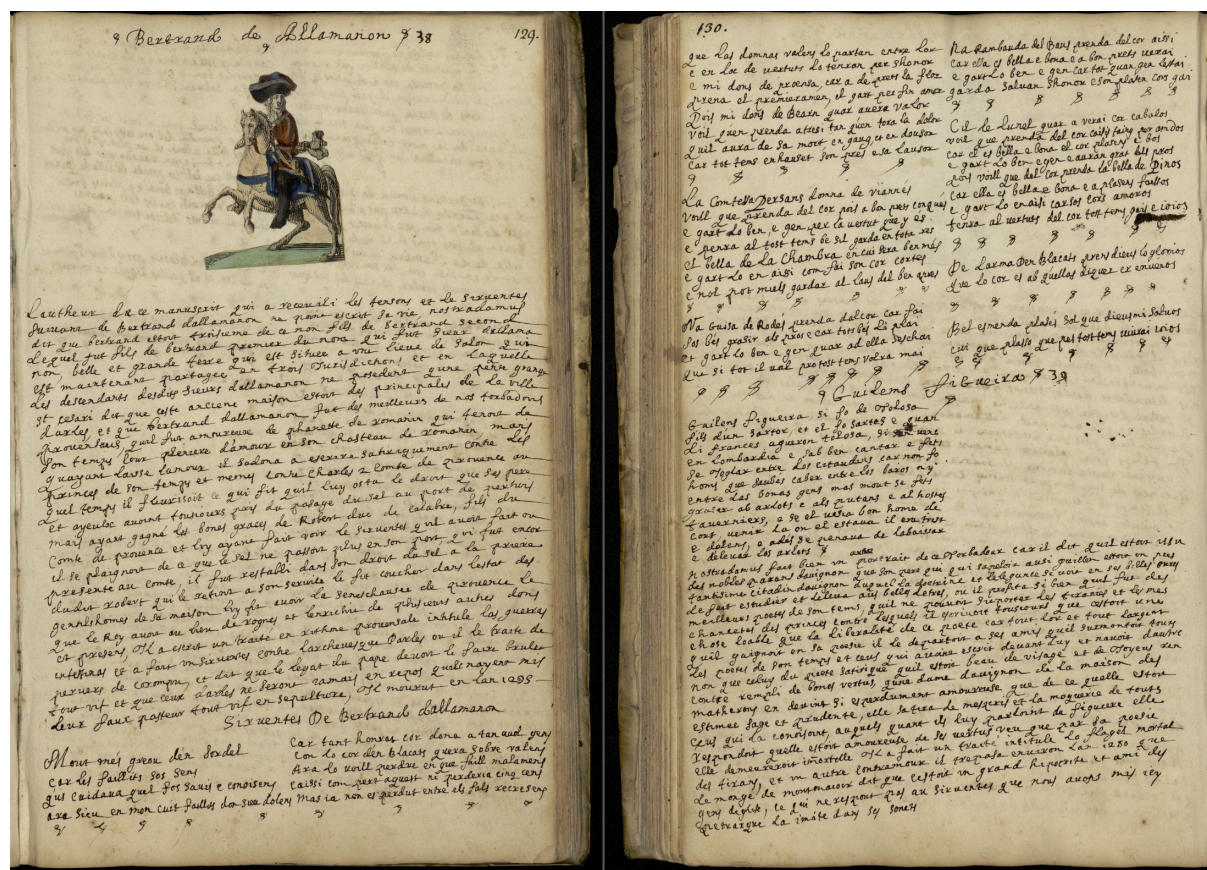 Bertrand de Allamanon 38
129.
Lautheur de ce manuscrit qui a receuilli les tensons et le sirventes
suivant de Bertrand dallamanon ne point escrit sa vie, nostradamus
dit que bertrand estoit troisieme de ce non fils de Bertrand second
lequel fut fils de bertrand premier du nom qui fut sieur dallama
non, belle et grande terre qui est située a une lieue de salon qui
est maintenant partagee en trois Jurisdictions et en laquelle
les descendants desdits sieurs dallamanon ne possedent qune petite grange
st cesari dit que ceste anciene maison estoit des principales de la ville
darles et que Bertrand dallamanon fut des meilleurs de nos trobadours
prouensaus, quil fut amoureuse de phanete de romanin qui tenoit de
son temps cour pleniere damour en son chasteau de romanin, mais
quayant laissé lamour il sadona a escrire satiricquement contre les
princes de son temps et mesmes contre Charles 2 Comte de prouence au
quel temps il fleurisoit ce qui fit quil luy osta le droit que ses pere
et ayeulx avoint tousiours pris du pasage du sel au port de pertuis
mais ayant gagné les bones graces de Robert duc de calabre, fils du
Comte de provence et luy ayant fait voir le sirventes qvil avoit fait ou
il se plaignoit de ce que le sel ne passoit plus en son port, qvi fut encor
presenté au comte, il fut restabli dans son droit du sel a la priere
dudit robert qui le retint a son service le fit coucher dans lestat des
gentilshomes de sa maison luy fit avoir la seneschausee de provence le
que le Roy avoit au lieu de rognes et lenrichi de plusieurs autres dons
et presens, Il a escrit un traité en rithme provensale intitule las guerras
intestinas et a fait un sirventes contre larchevesque Darles ou il le traite de
pervers de corompu, et dit que le legat du pape devoit le faire bruler
tout vif et que ceux darles ne seront jamais en repos quils nayent mis
leur faux pasteur tout vif en sepulture, Il mourut en lan 1295
Sirventes De Bertrand dallamanon
Mout mes greou den sordel
car les faillits sos sens
qus cuidava quel fos savis e conoisens
ara sieu en mon cuit faillits don sieu dolens
Car tant honrat cor dona a tan aul gens
con lo cor den blacats quera sobre valens
Ara lo voill perdre en que faill malamens
caissi com pert aquest ni perderia cinq cens
Mas ia non es perdut entre els fals recresens
130.
que las domnas valens lo partan entre lor
e en loc de vertuts lo tenran per shonor
e mi dons de proensa, car a de prets la flor
prena el premieramen, el gart per fin amor
Pois mi dons de Bearn quar auera valor
voil quen prenda atresi tan quen tora la dolor
quil aura de sa mort en gaug, et en dousor
car tot tens enhauset son pres e sa lausor
La Comtessa Dersans domna de viannes
voill que prenda del cor pois a bon pres conqués
e gart lo ben, e gen per la vertut que y es
e penra al tost tems be sil garda en tota res
el bella de La Chambra en cui sera ben més
e gart lo en aisi com fai son cor cortes
e nol pot miels gardar al laus del ben apres
Na Guisa de Rodés prenda dal cor car fai
sos bés grasir als pros e car tots bés li plai
et gart lo ben e gen quar ad ella seschai
que si tot il val protost tens volra mai
Na Rambauda del Baus prenda del cor aissi
car ella es bella e bona e a bon prets verai
e gart lo ben e gen car tot quan gen lestai
garda salvan shonor e son platen cors gai
Cil de Lunel quar a verai cor cabalos
voil que prenda del cor caissi taing per amdos
car il es bella e bona el cor plasens e bos
e gart lo ben e gen e auran grat dels pros
pois voill que del cor prenda la bella de Pinos
car ella es bella e bona e a plasens faissos
e gart lo enaisi car sos cors amoros
tenra al vertuts del cor tost tems, gais e ioios
De Larma Den Blacats prens dieus lo glorios
que lo cor es ab quellas diquer er envenos
Bel esmenda plasés sol que dieus mi salvos
cui que plasso que pes tost tems viurai ioios
Guilems Figueira 39
Guilens Figueira si fo de tolosa
fils dun sartor, et el fo sartes e quan
li frances agueron tolosa, si sen venc
en lombardia e sab ben cantar e fets
se Joglar entre los citaudins car non fo
homs que saubes caber entre los baros ny
entre las bonas gens mas mout se fets
graser ab arlots e als putans e al hostes
tauerniers, e se el vesia bon home de
cort venir la on el estava il era trist
e dolens, e ades se penava de labaissar
e delevar los arlots
nostradamus fait bien un autre portrait de ce Trobadour car il dit quil estoit issu
des nobles parans davignon que son pere qui sapeloit ausi guillen estoit un pres
tantisime citadin davignon duquel la doctrine et lelegance se voit en ses belles oeuvres
le feit estudier et lesleva aus belles letres, ou il profita si bien quil fut des
meilleurs poetes de son tems, quil ne pouvoit suporter les tiranies et les mes
chancetes des princes contre lesquels il escrivoit tousiours que cestoit une
chose loable que la liberalité de ce poete car tout lor et tout largent
quil gaignoit en sa poesie il le departoit a ses amis quil surmontoit tous
les poetes de son temps et ceus qui avoint escrit devant luy et navoit dautre
non que celuy du poete satirique quil estoit beau de visage et de Joyeus ren
contre rempli de bones vertus, qune dame davignon de la maison des
matherons en devint si esperdument amoureuse que de ce quelle estoit
estimee sage et prudente, elle satira le mespris et la moquerie de touts
ceus qui la conoisoint, auquels quant ils luy parloint de figuiere elle
respondoit quelle estoit amoureuse de ses vertus veu que par sa poesie
elle demeureroit imortelle Il a fait un traité intitulé lo flagel mortal
des tirans, et un autre contramour il trepasa environ lan 1280 que
le monge de montmaiour dit que cestoit un grand hipocrite et ami des
gens deglise, ce qui ne respont pas au sirventes que nous avons mis icy
petrarque la imité dans ses sonets